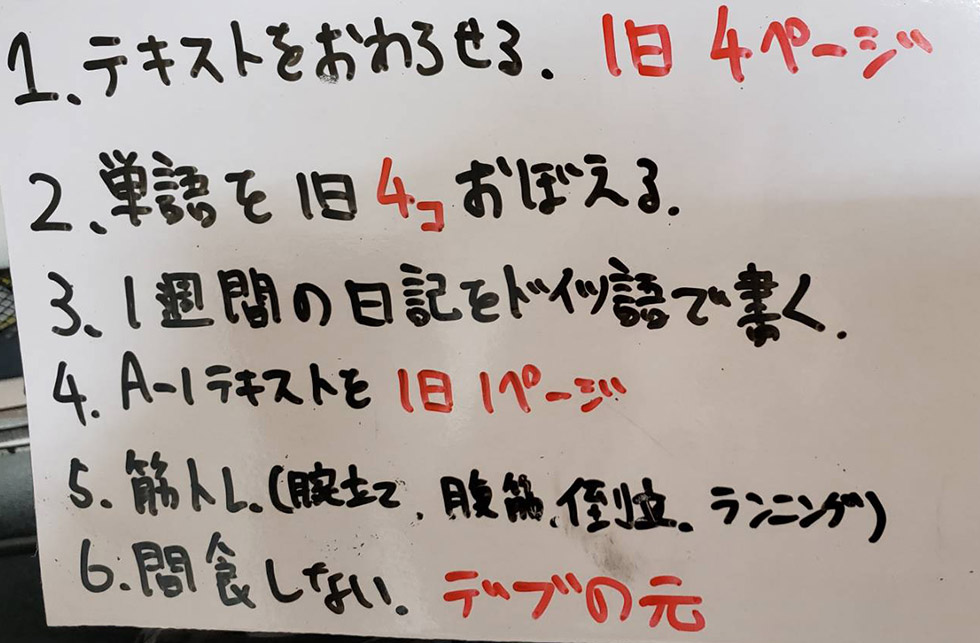 1、テキストをおわらせる. 1日 4ページ
2、単語を1日4コおぼえる.
3、1週間の日記をドイツ語で書く.
4. A-1テキストを 1日1ページ
5. 筋トレ.(腕立て、腹筋、倒立、ランニング)
6. 間食しない. デブの元